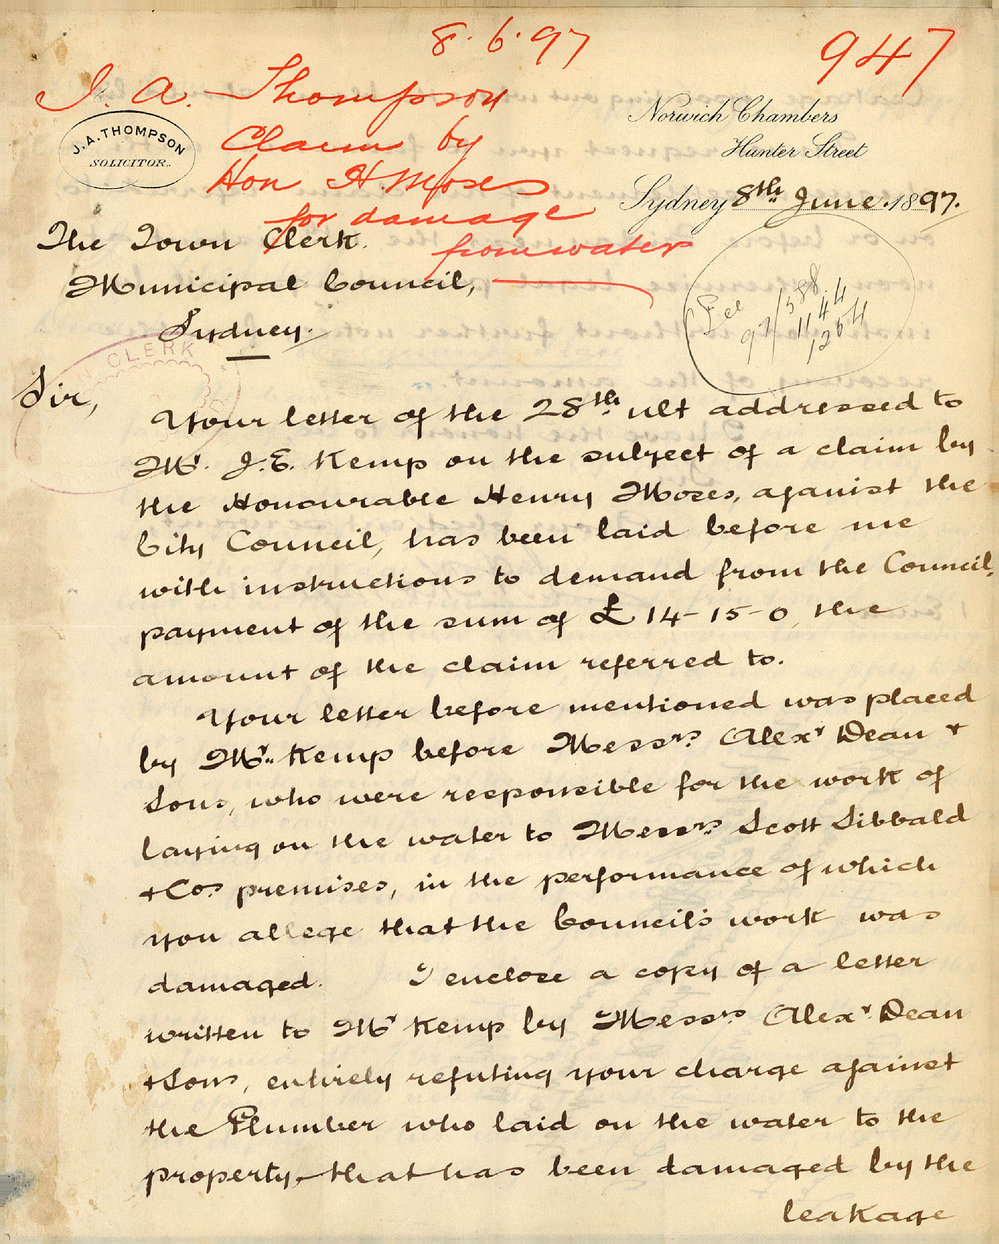 8.6.97
947
J. A. Thompson
Claim by
Hon H. Moses
for damage
from water
J.A. THOMPSON
SOLICITOR.
Norwich Chambers
Hunter Street
Sydney 8th June 1897.
97/588
1144
1254
The Town Clerk.
Municipal Council,
Sydney.
CLERK
Sir,
Your letter of the 28th ult addressed to
Mr. J.E. Kemp on the subject of a claim by
the Honourable Henry Moses, against the
City Council, has been laid before me
with instructions to demand from the Council,
payment of the sum of £14-15-0, the
amount of the claim referred to.
Your letter before mentioned was placed
by Mr. Kemp before Messrs. Alexr Dean +
Sons, who were responsible for the work of
laying on the water to Messrs. Scott Sibbald
+ Cos premises, in the performance of which
you allege that the Council's work was
damaged. I enclose a copy of a letter
written to Mr Kemp by Messrs. Alexr. Dean
+ Sons, entirely refuting your charge against
the Plumber who laid on the water to the
property, that has been damaged by the
leakage